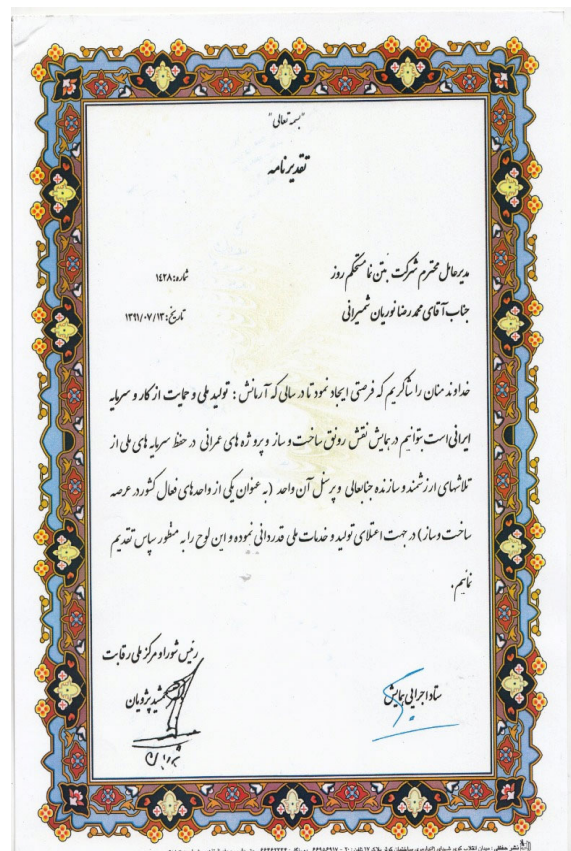 "بسمه تعالی"
تقدیرنامه
مدیرعامل محترم شرکت بتن نما مستحکم روز
شماره: ۱۴۲۸
جناب آقای محمدرضا نوریان شمیرانی
تاریخ: ۱۳۹۱/۰۷/۱۳
خداوند منان را شاکریم که فرصتی ایجاد نمود تا در سالی که آرمانش: تولید ملی و حمایت از کار و سرمایه
ایرانی است بتوانیم در همایش نقش رونق ساخت و ساز و پروژه های عمرانی در حفظ سرمایه های ملی از
تلاشهای ارزشمند و سازنده جنابعالی و پرسنل آن واحد (به عنوان یکی از واحدهای فعال کشور در عرصه
ساخت و ساز) در جهت اعتلای تولید و خدمات ملی قدردانی نموده و این لوح را به منظور سپاس تقدیم
نمائیم.
رئیس شورا و مرکز ملی رقابت
جمشید پژویان
ستاد اجرایی همایش
نشر حفظی: میدان انقلاب کوی شهدای